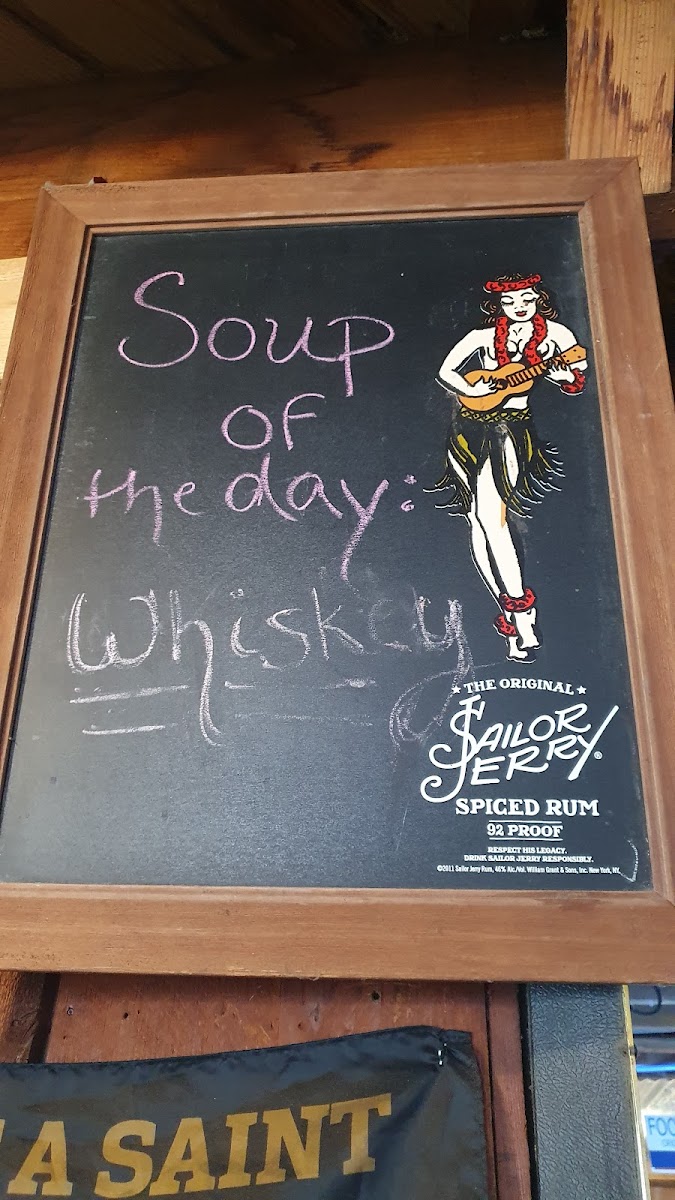 Soup
OF
the day:
Whiskey
★ THE ORIGINAL ★
SAILOR
JERRY®
SPICED RUM
92 PROOF
RESPECT HIS LEGACY.
DRINK SAILOR JERRY RESPONSIBLY.
©2011 Sailor Jerry Rum, 46% Alc./Vol. William Grant & Sons, Inc. New York, NY.
A SAINT
FOO